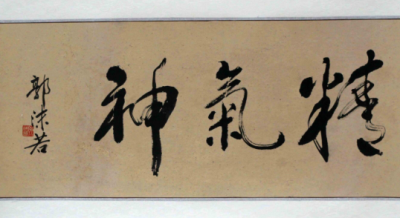 精氣神
郭沫若